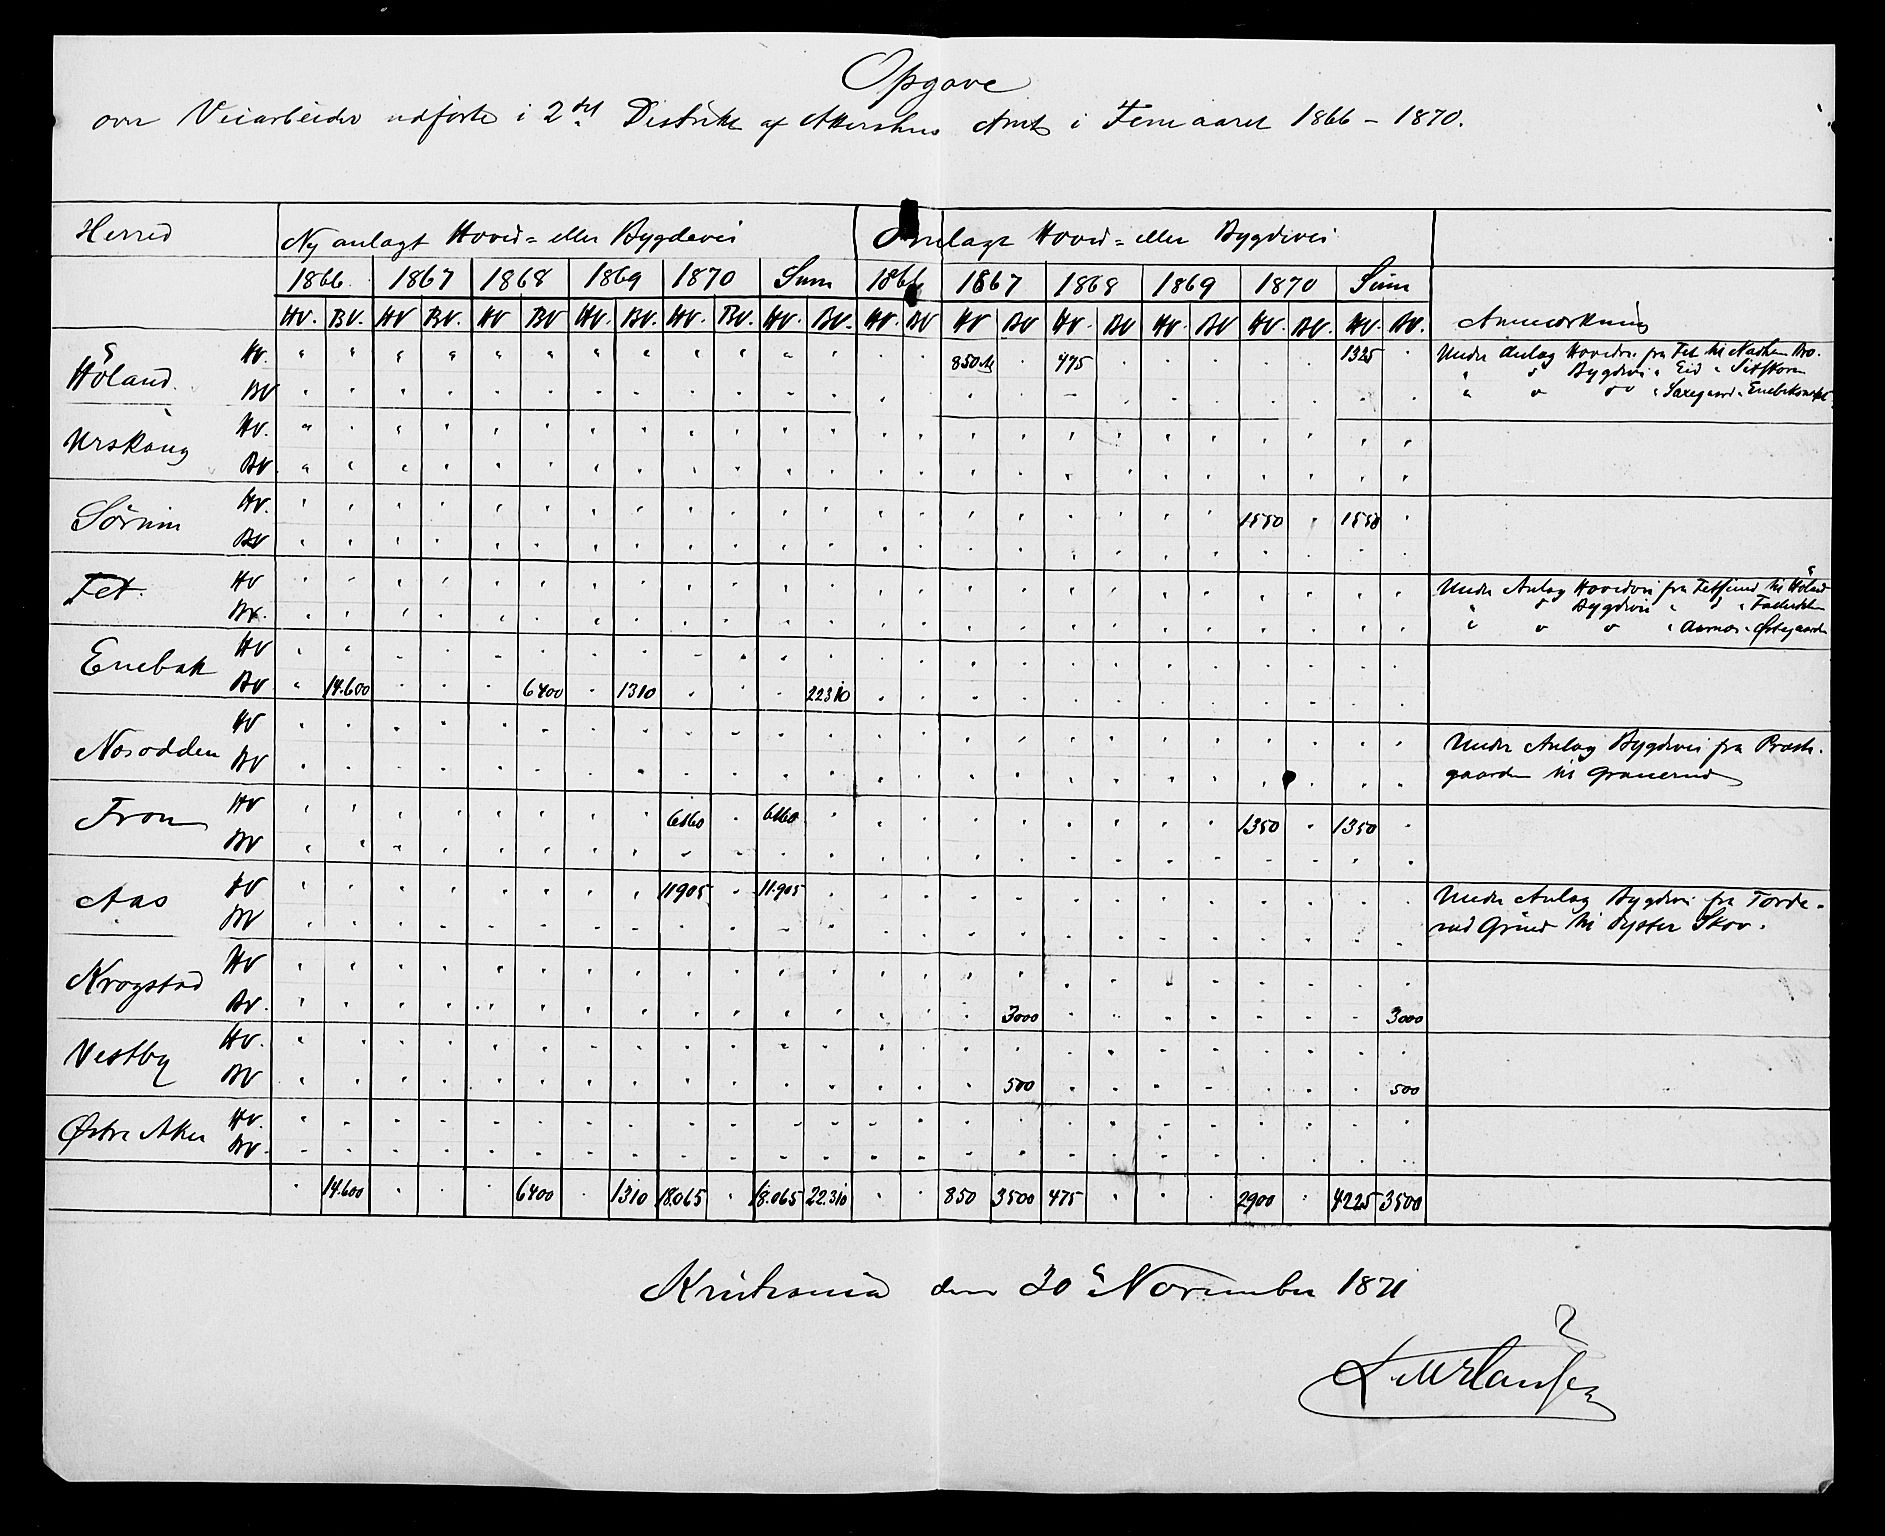 Opgave
over Veiarbeider udførte i 2det Distrikt af Akershus Amt i Femaaret 1866 – 1870.
Herred Ny anlagt Hoved- eller Bygdevei Omlagt Hoved- eller Bygdevei
1866. 1867 1868 1869 1870 Sum 1866 1867 1868 1869 1870 Sum
HV. BV. HV BV. HV BV HV. BV. HV. BV. HV. BV. HV. BV HV BV HV. BV HV. BV HV. BV. HV. BV. Anmærkning
Höland. HV. 850 475 1325 Under Anlag Hovedv. fra Fet til Bro.
BV " " Bygdevei " Eid "
" " " "
Urskoug HV.
BV.
Sörum HV. 1550 1550
BV
Fet. HV Under Anlag Hovedvei fra Fetsund til Höland
BV. " " Bygdevei " "
" " " "
Enebak HV
BV 14.600 6400 1310 22310
Nesodden HV Under Anlag Bygdevei fra Præste-
BV gaarden til
Fron HV 6160 6160 1350 1350
BV
Aas HV 11905 11.905 Under Anlag Bygdevei fra Forde-
BV rud Grind til Dyster Skov.
Krogstad HV
BV. 3000 3000
Vestby HV.
BV 500 500
Østre Aker HV.
BV.
14.600 6400 1310 18.065 18.065 22.310 850 3500 475 2900 4225 3500
Kristiania den 30 November 1871